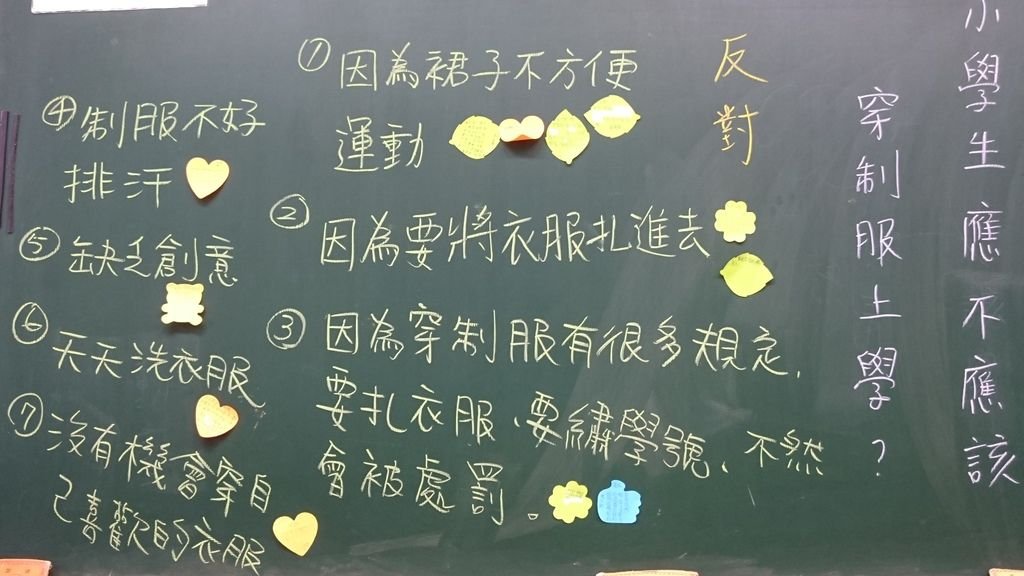 小學生應不應該
穿制服上學？
反對
①因為裙子不方便
運動
②因為要將衣服扎進去
③因為穿制服有很多規定，
要扎衣服、要繡學號、不然
會被處罰。
④制服不好
排汗
⑤缺乏創意
⑥天天洗衣服
⑦沒有機會穿自
己喜歡的衣服